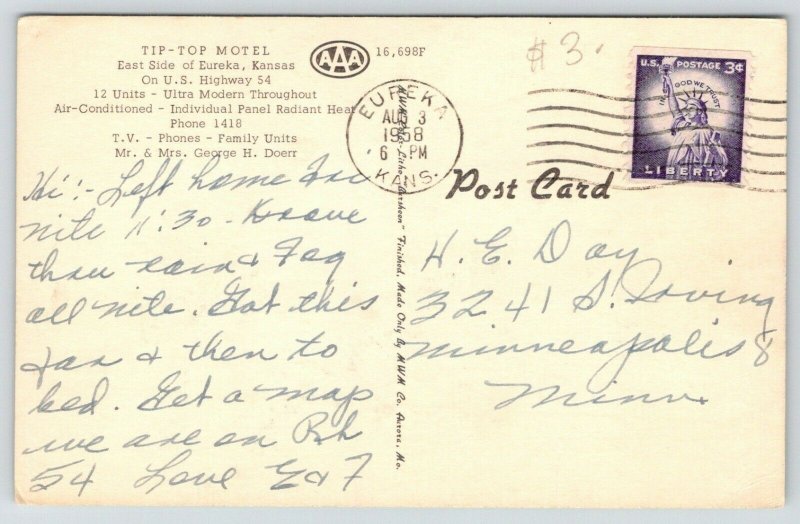 TIP-TOP MOTEL
East Side of Eureka, Kansas
On U.S. Highway 54
12 Units - Ultra Modern Throughout
Air-Conditioned - Individual Panel Radiant Heat
Phone 1418
T.V. - Phones - Family Units
Mr. & Mrs. George H. Doerr
AAA
16,698F
$3.
EUREKA
AUG 3
1958
6 PM
KANS.
U.S. POSTAGE 3¢
IN GOD WE TRUST
LIBERTY
Post Card
Hi:- Left home Fri
nite 11:30 - Drove
thru rain & Fog
all nite. Got this
far & then to
bed. Get a map
we are on
54 Love E & F
MWM Color-Litho "Larsheen" Finished. Made Only By MWM Co. Aurora, Mo.
H. E. Day
3241 S. Irving
Minneapolis 8
Minn